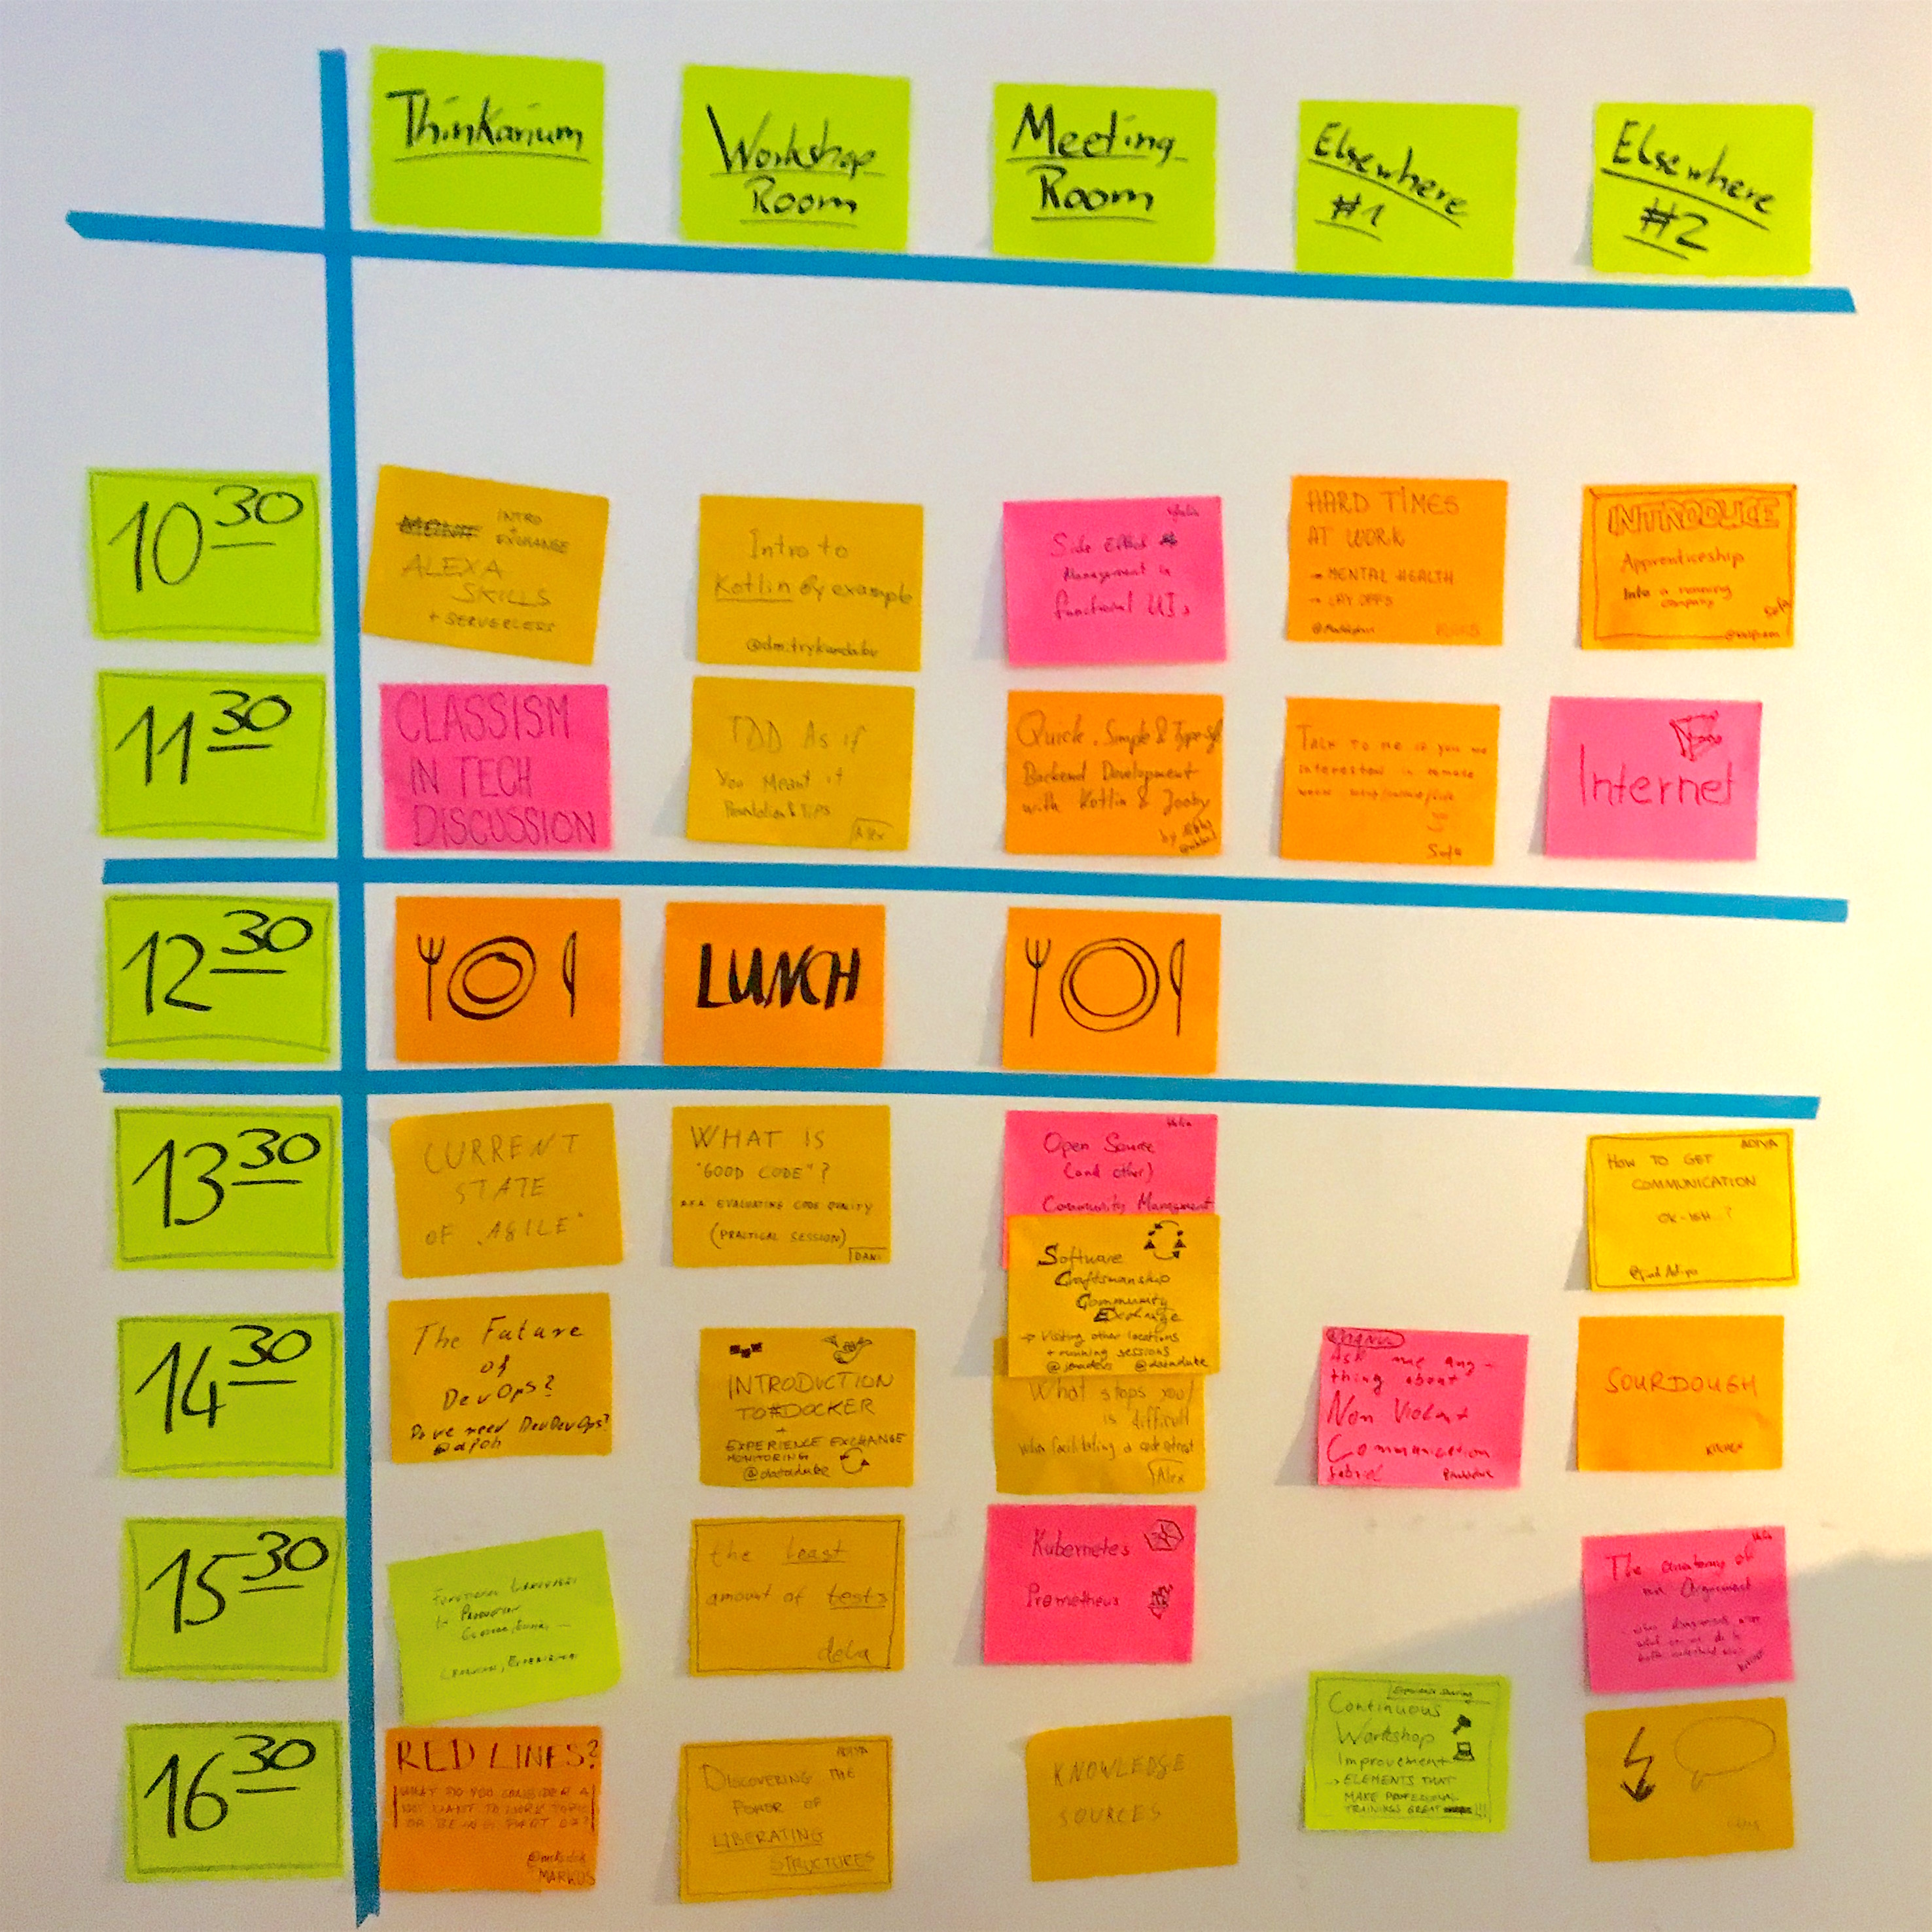 Thinkarium
Workshop
Room
Meeting
Room
Elsewhere
#1
Elsewhere
#2
10 30
INTRO
+
EXCHANGE
ALEXA
SKILLS
+ SERVERLESS
Intro to
Kotlin By example
Side Effect
Management in
functional UIs
HARD TIMES
AT WORK
→ MENTAL HEALTH
→ LAY OFFS
INTRODUCE
Apprenticeship
Into a running
company
11 30
CLASSISM
IN TECH
DISCUSSION
TDD As if
You Meant it
& Tips
Alex
Quick, Simple &
Backend Development
with Kotlin & Jooby
by
TALK TO ME IF YOU ARE
interested in remote
work
Sofa
Internet
12 30
LUNCH
13 30
CURRENT
STATE
OF "AGILE"
WHAT IS
"GOOD CODE"?
A.K.A EVALUATING CODE QUALITY
(PRACTICAL SESSION)
DANI
Open Source
(and other)
Community Managment
Software
Craftsmanship
Community
Exchange
→ Visiting other locations
+ running sessions
@jenadevs @dataduke
ADIYA
HOW TO GET
COMMUNICATION
OK-ISH...?
14 30
The Future
of
DevOps?
Do we need DevDevOps?
INTRODUCTION
TO #DOCKER
+
EXPERIENCE EXCHANGE
MONITORING
@dataduke
What stops you/
is difficult
when facilitating a code retreat
Alex
Ask me any-
thing about
Non Violent
Communication
SOURDOUGH
KITCHEN
15 30
the least
amount of tests
Kubernetes
Prometheus
The anatomy of
an Argument
16 30
RED LINES?
WHAT DO YOU CONSIDER A
MARKUS
DISCOVERING THE
POWER OF
LIBERATING
STRUCTURES
KNOWLEDGE
SOURCES
Experience Sharing
Continuous
Workshop
Improvement
→ ELEMENTS THAT
MAKE PROFESSIONAL
TRAININGS GREAT